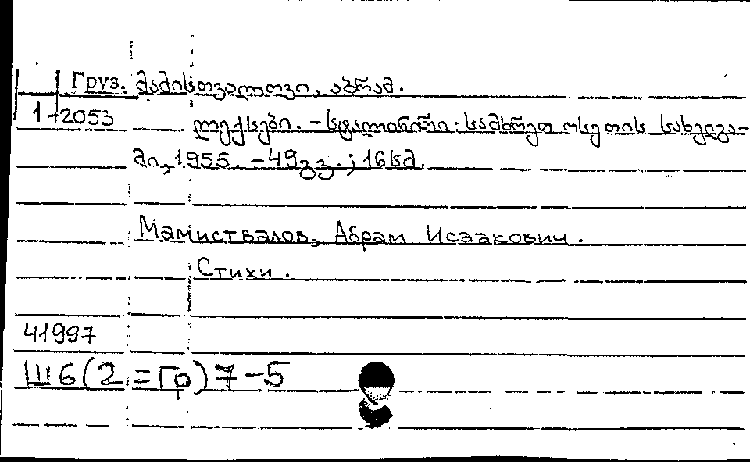 Груз. მამისთვალოვი, აბრამ.
1-2053
ლექსები. - სტალინირი: სამხრეთ ოსეთის სახელგა-
მი, 1955. - 49გვ.; 16სმ.
Мамиствалов, Абрам Исаакович.
Стихи.
41997
Ш6(2=Гр)7-5